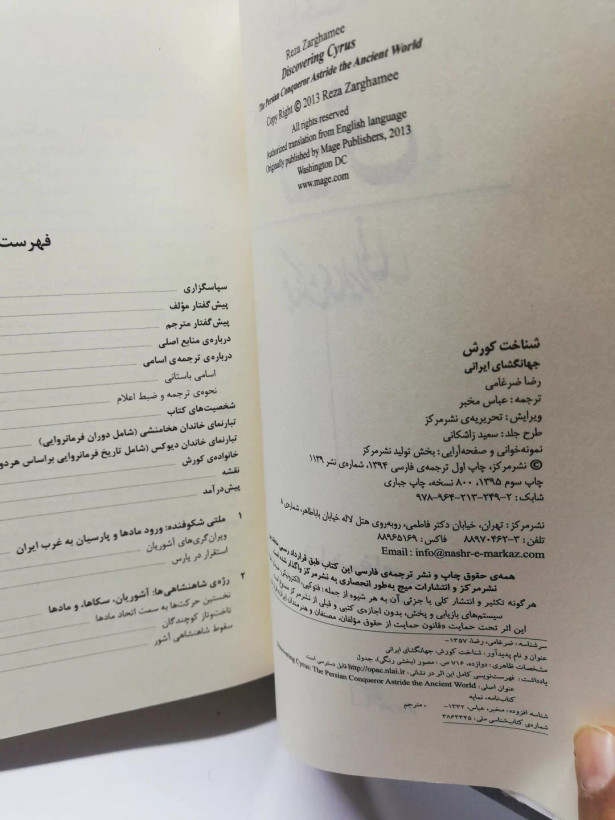 Reza Zarghamee
Discovering Cyrus
The Persian Conqueror Astride the Ancient World
Copy Right © 2013 Reza Zarghamee
All rights reserved
Authorized translation from English language
Originally published by Mage Publishers, 2013
Washington DC
www.mage.com
شناخت کورش
جهانگشای ایرانی
رضا ضرغامی
ترجمه: عباس مخبر
ویرایش: تحریریه‌ی نشرمرکز
طرح جلد: سعید زاشکانی
نمونه‌خوانی و صفحه‌آرایی: بخش تولید نشرمرکز
© نشرمرکز، چاپ اول ترجمه‌ی فارسی ۱۳۹۴، شماره‌ی نشر ۱۱۳۹
چاپ سوم ۱۳۹۵، ۸۰۰ نسخه، چاپ جباری
شابک: ۲-۲۴۹-۲۱۳-۹۶۴-۹۷۸
نشرمرکز: تهران، خیابان دکتر فاطمی، روبه‌روی هتل لاله خیابان باباطاهر، شماره‌ی ۸
تلفن: ۳-۸۸۹۷۰۴۶۲ فاکس: ۸۸۹۶۵۱۶۹
Email: info@nashr-e-markaz.com
همه‌ی حقوق چاپ و نشر ترجمه‌ی فارسی این کتاب طبق قرارداد رسمی
نشرمرکز و انتشارات میج به‌طور انحصاری به نشرمرکز واگذار شده است
هرگونه تکثیر و انتشار کلی یا جزئی آن به هر شیوه از جمله: فتوکپی، الکترونیکی،
سیستم‌های بازیابی و پخش، بدون اجازه‌ی کتبی و قبلی از نشرمرکز ممنوع است
این اثر تحت حمایت «قانون حمایت از حقوق مؤلفان، مصنفان و هنرمندان
سرشناسه: ضرغامی، رضا، ۱۳۵۷-
عنوان و نام پدیدآور: شناخت کورش، جهانگشای ایرانی
مشخصات ظاهری: دوازده، ۷۱۶ ص.، مصور (بخشی رنگی)، جدول
یادداشت: فهرست‌نویسی کامل این اثر در نشانی: http://opac.nlai.ir قابل دسترسی است
عنوان اصلی: Discovering Cyrus: The Persian Conqueror Astride the Ancient World
کتاب‌نامه، نمایه
شناسه افزوده: مخبر، عباس، ۱۳۳۲- ، مترجم
شماره‌ی کتاب‌شناسی ملی: ۳۸۶۳۳۴۵
فهرست
سپاسگزاری
پیش‌گفتار مؤلف
پیش‌گفتار مترجم
درباره‌ی منابع اصلی
درباره‌ی ترجمه‌ی اسامی
اسامی باستانی
نحوه‌ی ترجمه و ضبط اعلام
شخصیت‌های کتاب
تبارنمای خاندان هخامنشی (شامل دوران فرمانروایی)
تبارنمای خاندان دیوکس (شامل تاریخ فرمانروایی براساس هردو
خانواده‌ی کورش
نقشه
پیش‌درآمد
۱ ملتی شکوفنده: ورود مادها و پارسیان به غرب ایران
ویران‌گری‌های آشوریان
استقرار در پارس
۲ رژه‌ی شاهنشاهی‌ها: آشوریان، سکاها، و مادها
نخستین حرکت‌ها به سمت اتحاد مادها
تاخت‌وتاز کوچندگان
سقوط شاهنشاهی آشور